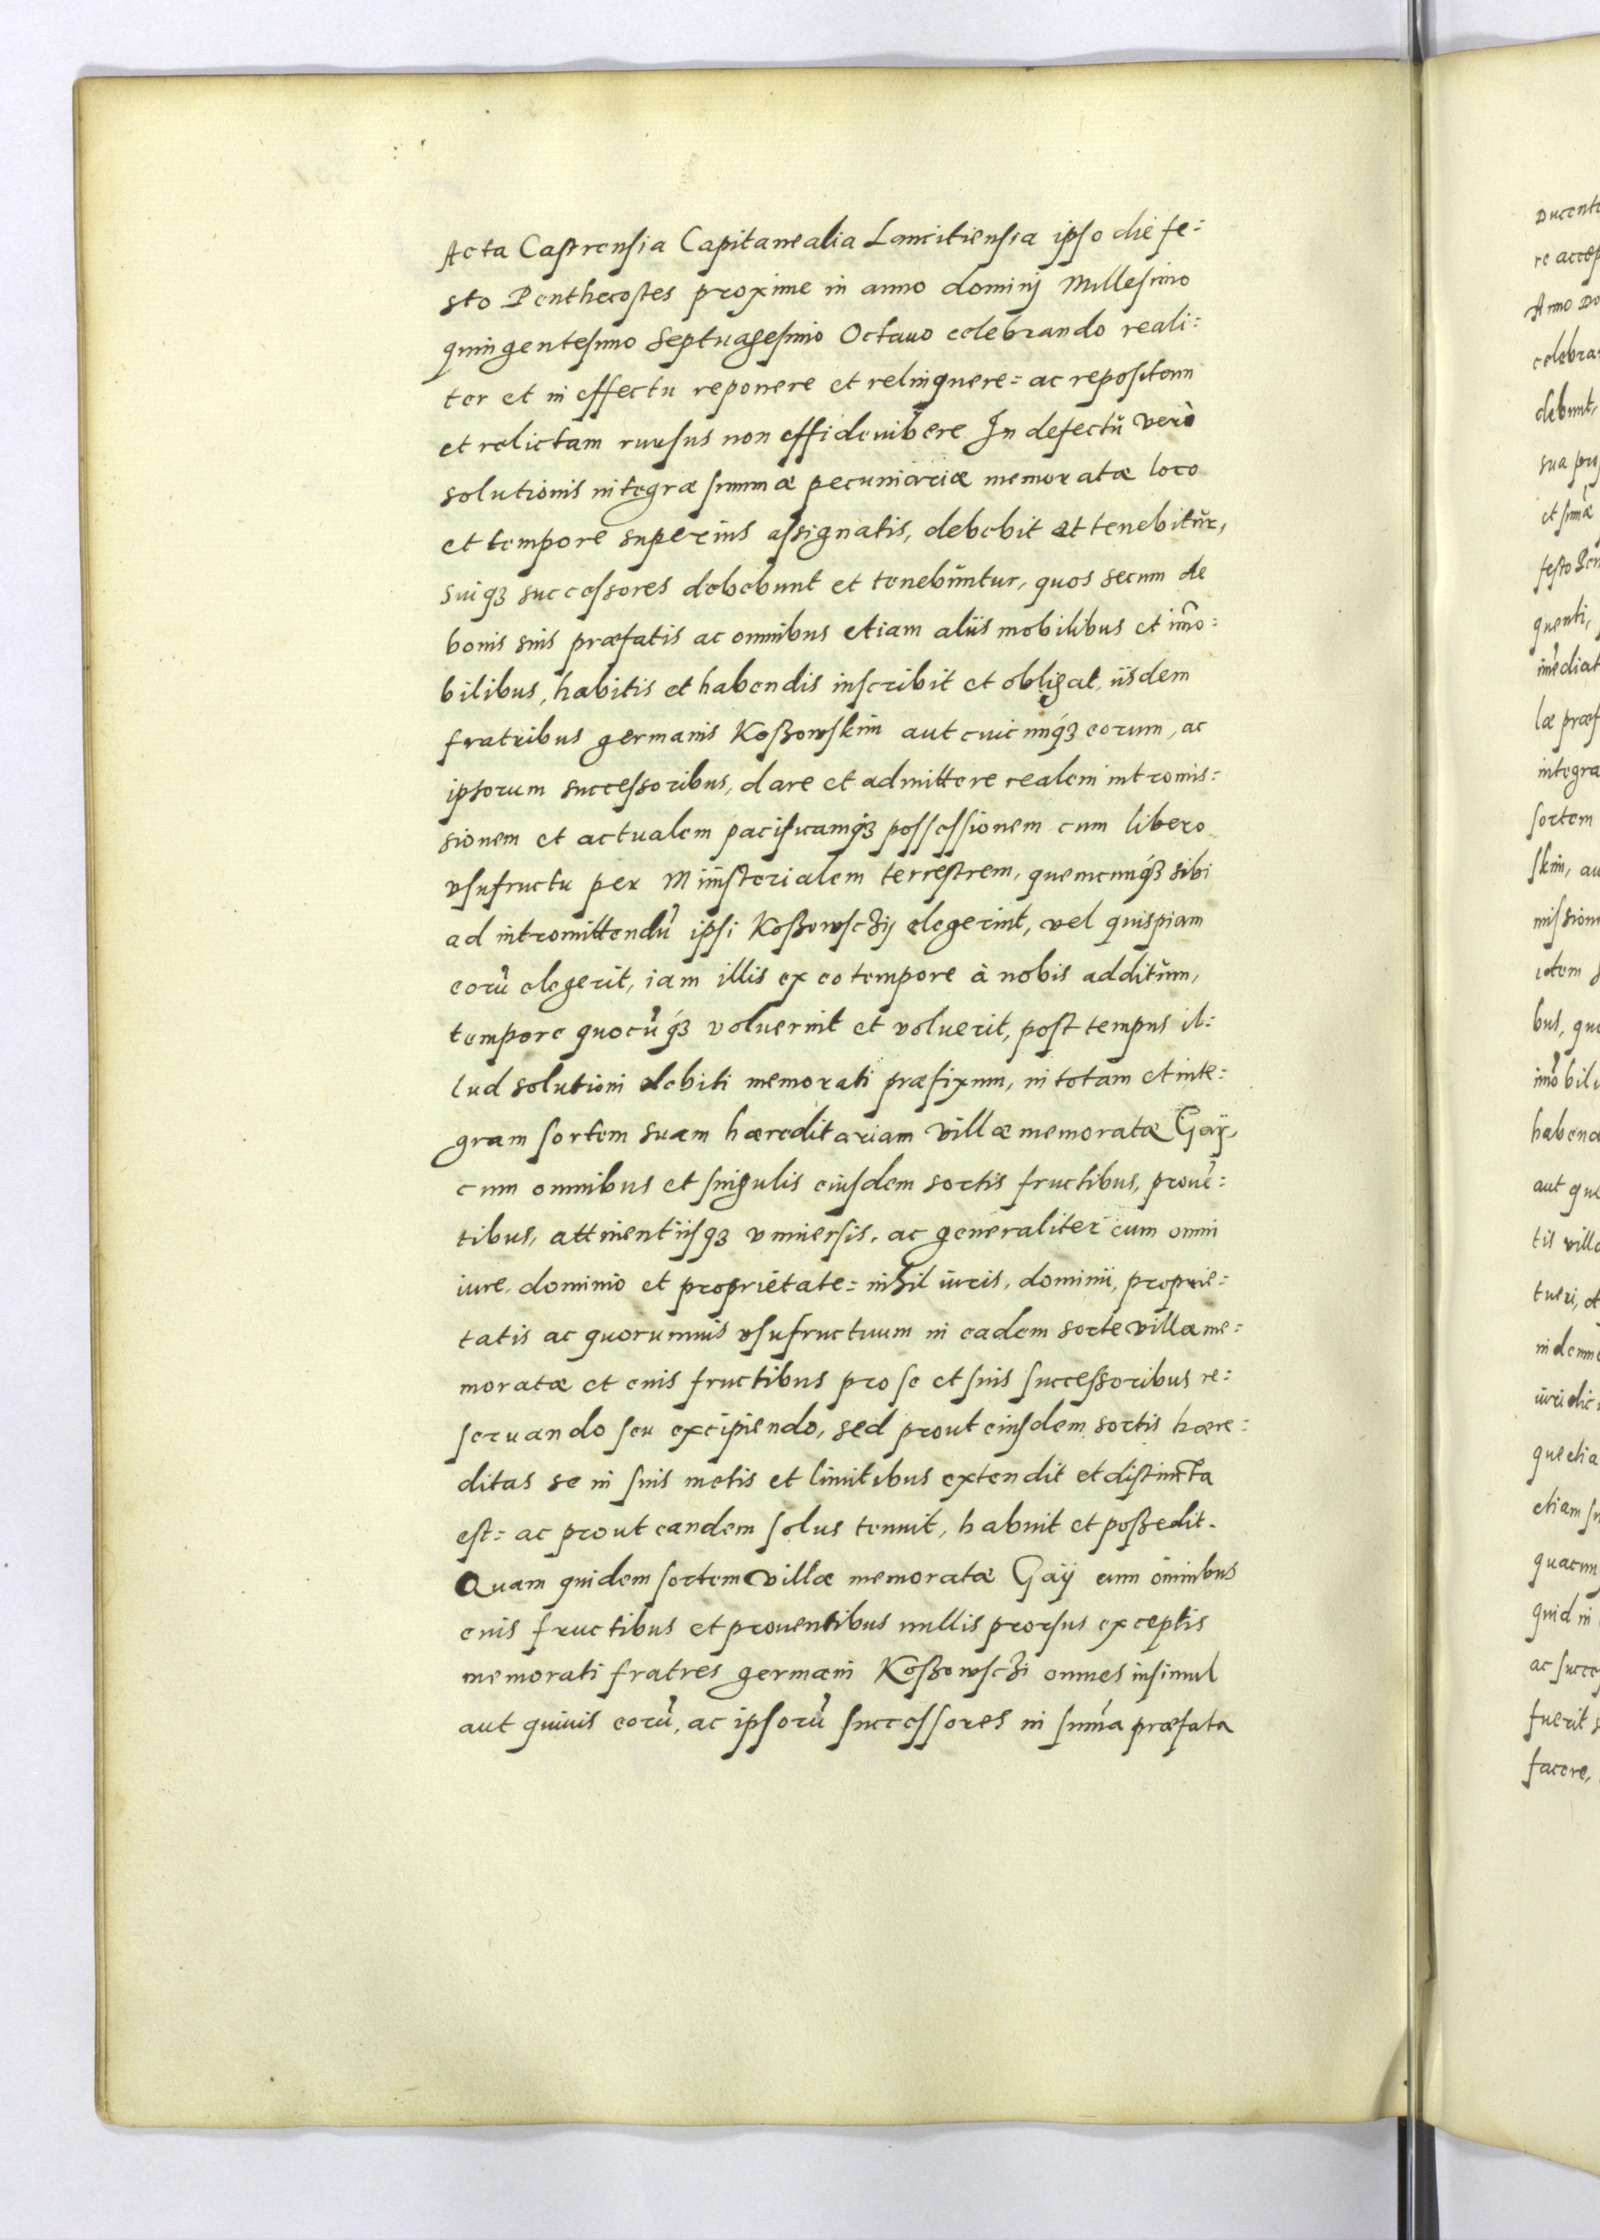 Acta Castrensia Capitanealia Lancitiensia ipso die fe=
sto Penthecostes proxime in anno dominij Millesimo
quingentesimo Septuagesimo Octauo celebrando reali=
ter et in effectu reponere et relinquere= ac repositam
et relictam rursus non
In defectũ verò
solutionis integræ summæ pecuniariæ memoratæ loco
et tempore superius assignatis, debebit et tenebitur,
suiqꝫ successores debebunt et tenebuntur, quos secum de
bonis suis præfatis ac omnibus etiam aliis mobilibus et im̃o=
bilibus, habitis et habendis inscribit et obligat, iisdem
fratribus germanis Koßowskim aut cuicunqꝫ eorum, ac
ipsorum successoribus, dare et admittere realem intromis=
sionem et actualem pacificamqꝫ possessionem cum libero
vsufructu per Ministerialem terrestrem, quemcunqꝫ sibi
ad intromittendũ ipsi Koßowsczij elegerint, vel quispiam
eorũ elegerit, iam illis ex eo tempore à nobis additum,
tempore quocũqꝫ voluerint et voluerit, post tempus il=
lud solutioni debiti memorati præfixum, in totam et inte=
gram sortem suam hæreditariam villæ memoratæ Gaÿ,
cum omnibus et singulis eiusdem sortis fructibus, prouẽ=
tibus, attinentiisqꝫ vniuersis, ac generaliter cum omni
iure, dominio et proprietate= nihil iuris, dominii, proprie=
tatis ac quorumuis vsufructuum in eadem sorte villæ me=
moratæ et euis fructibus pro se et suis successoribus re=
seruando seu excipiendo, sed prout eiusdem sortis hære=
ditas se in suis metis et limitibus extendit et distincta
est= ac prout eandem solus tenuit, habuit et poßedit.
Quam quidem sortem villæ memoratæ Gaÿ cum omnibus
euis fructibus et prouentibus nullis prorsus exceptis
memorati fratres germani Koßowsczi omnes insimul
aut quiuis eorũ, ac ipsorũ successores in sum̃a præfata
Ducent
re accep
Anno Do
celebra
debunt,
sua pro
et sum̃æ
festo Pen
quenti,
im̃ediat
læ præf
integra
sortem
skim, au
mission
idem
bus, qu
im̃obili
habend
aut qu
tis villæ
tueri, et
indemn
iuridic
que etia
etiam su
quacun
quid in
ac succes
fuerit s
facere,